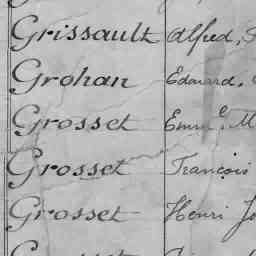 Grissault Alfred,
Grohan Edouard,
Grosset Emm.e M
Grosset François
Grosset Henri Jo
Grosset